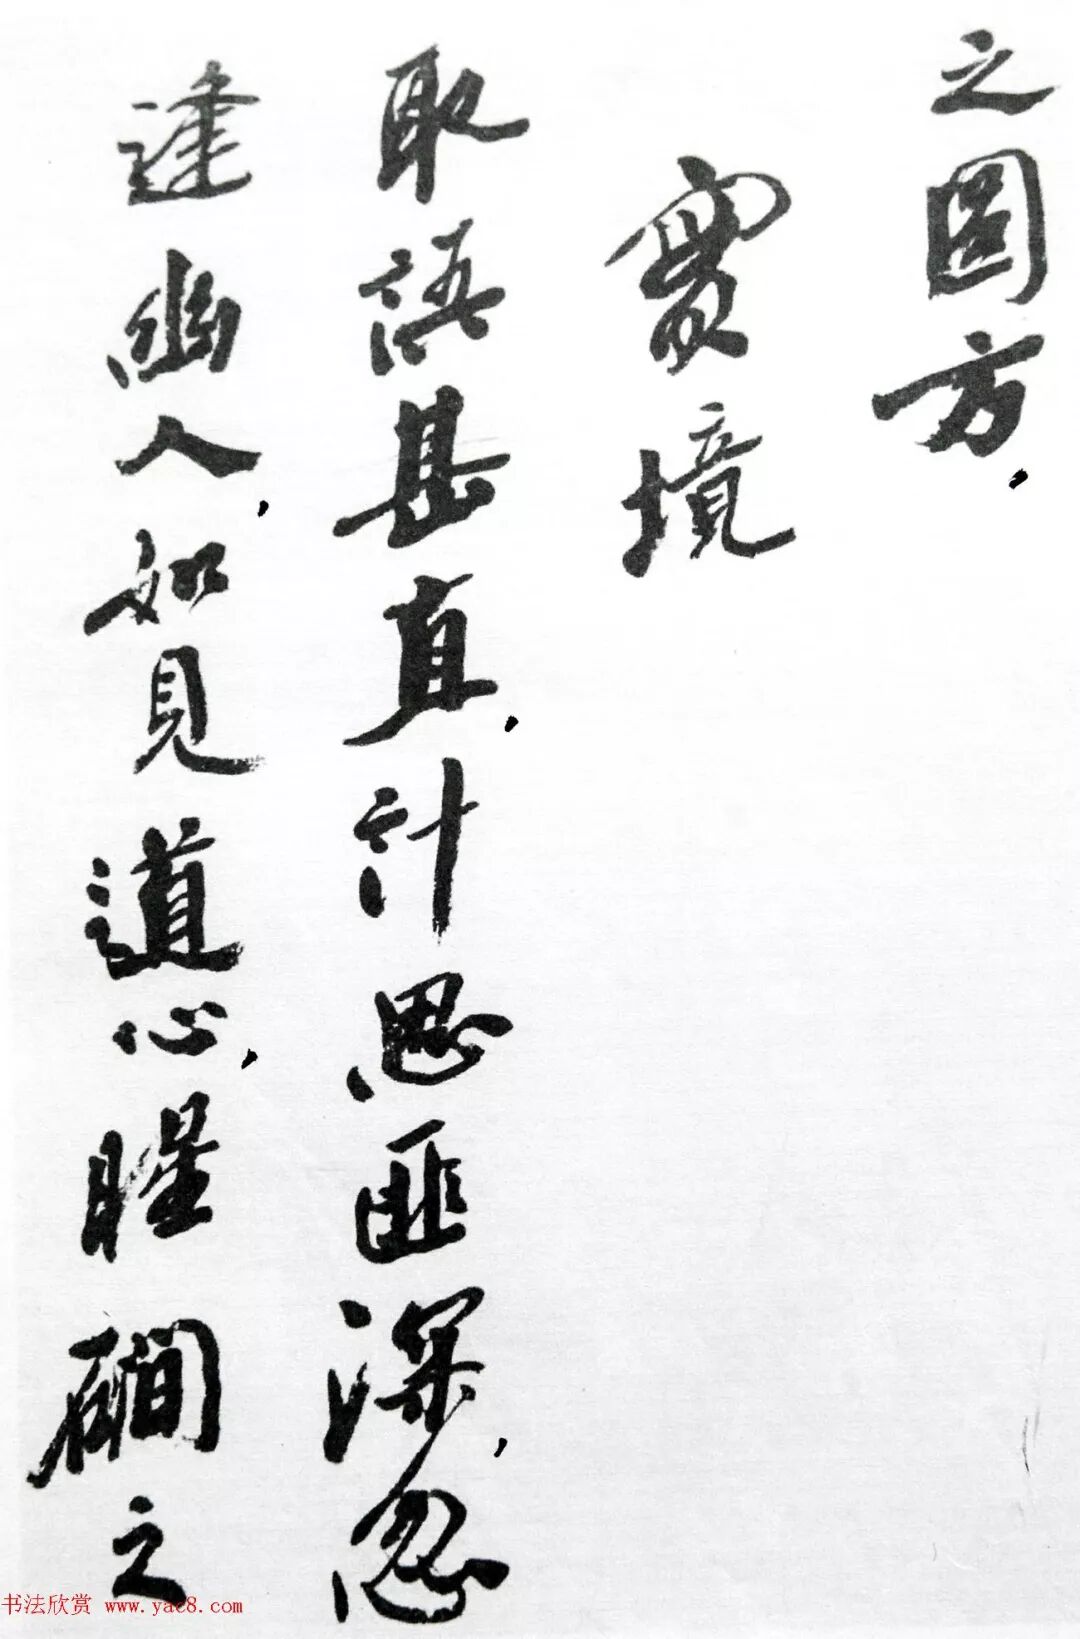 之圓方，
實境
取語甚直，計思匪深，忽
逢幽人，如見道心，暒磵之
书法欣赏 www.yac8.com